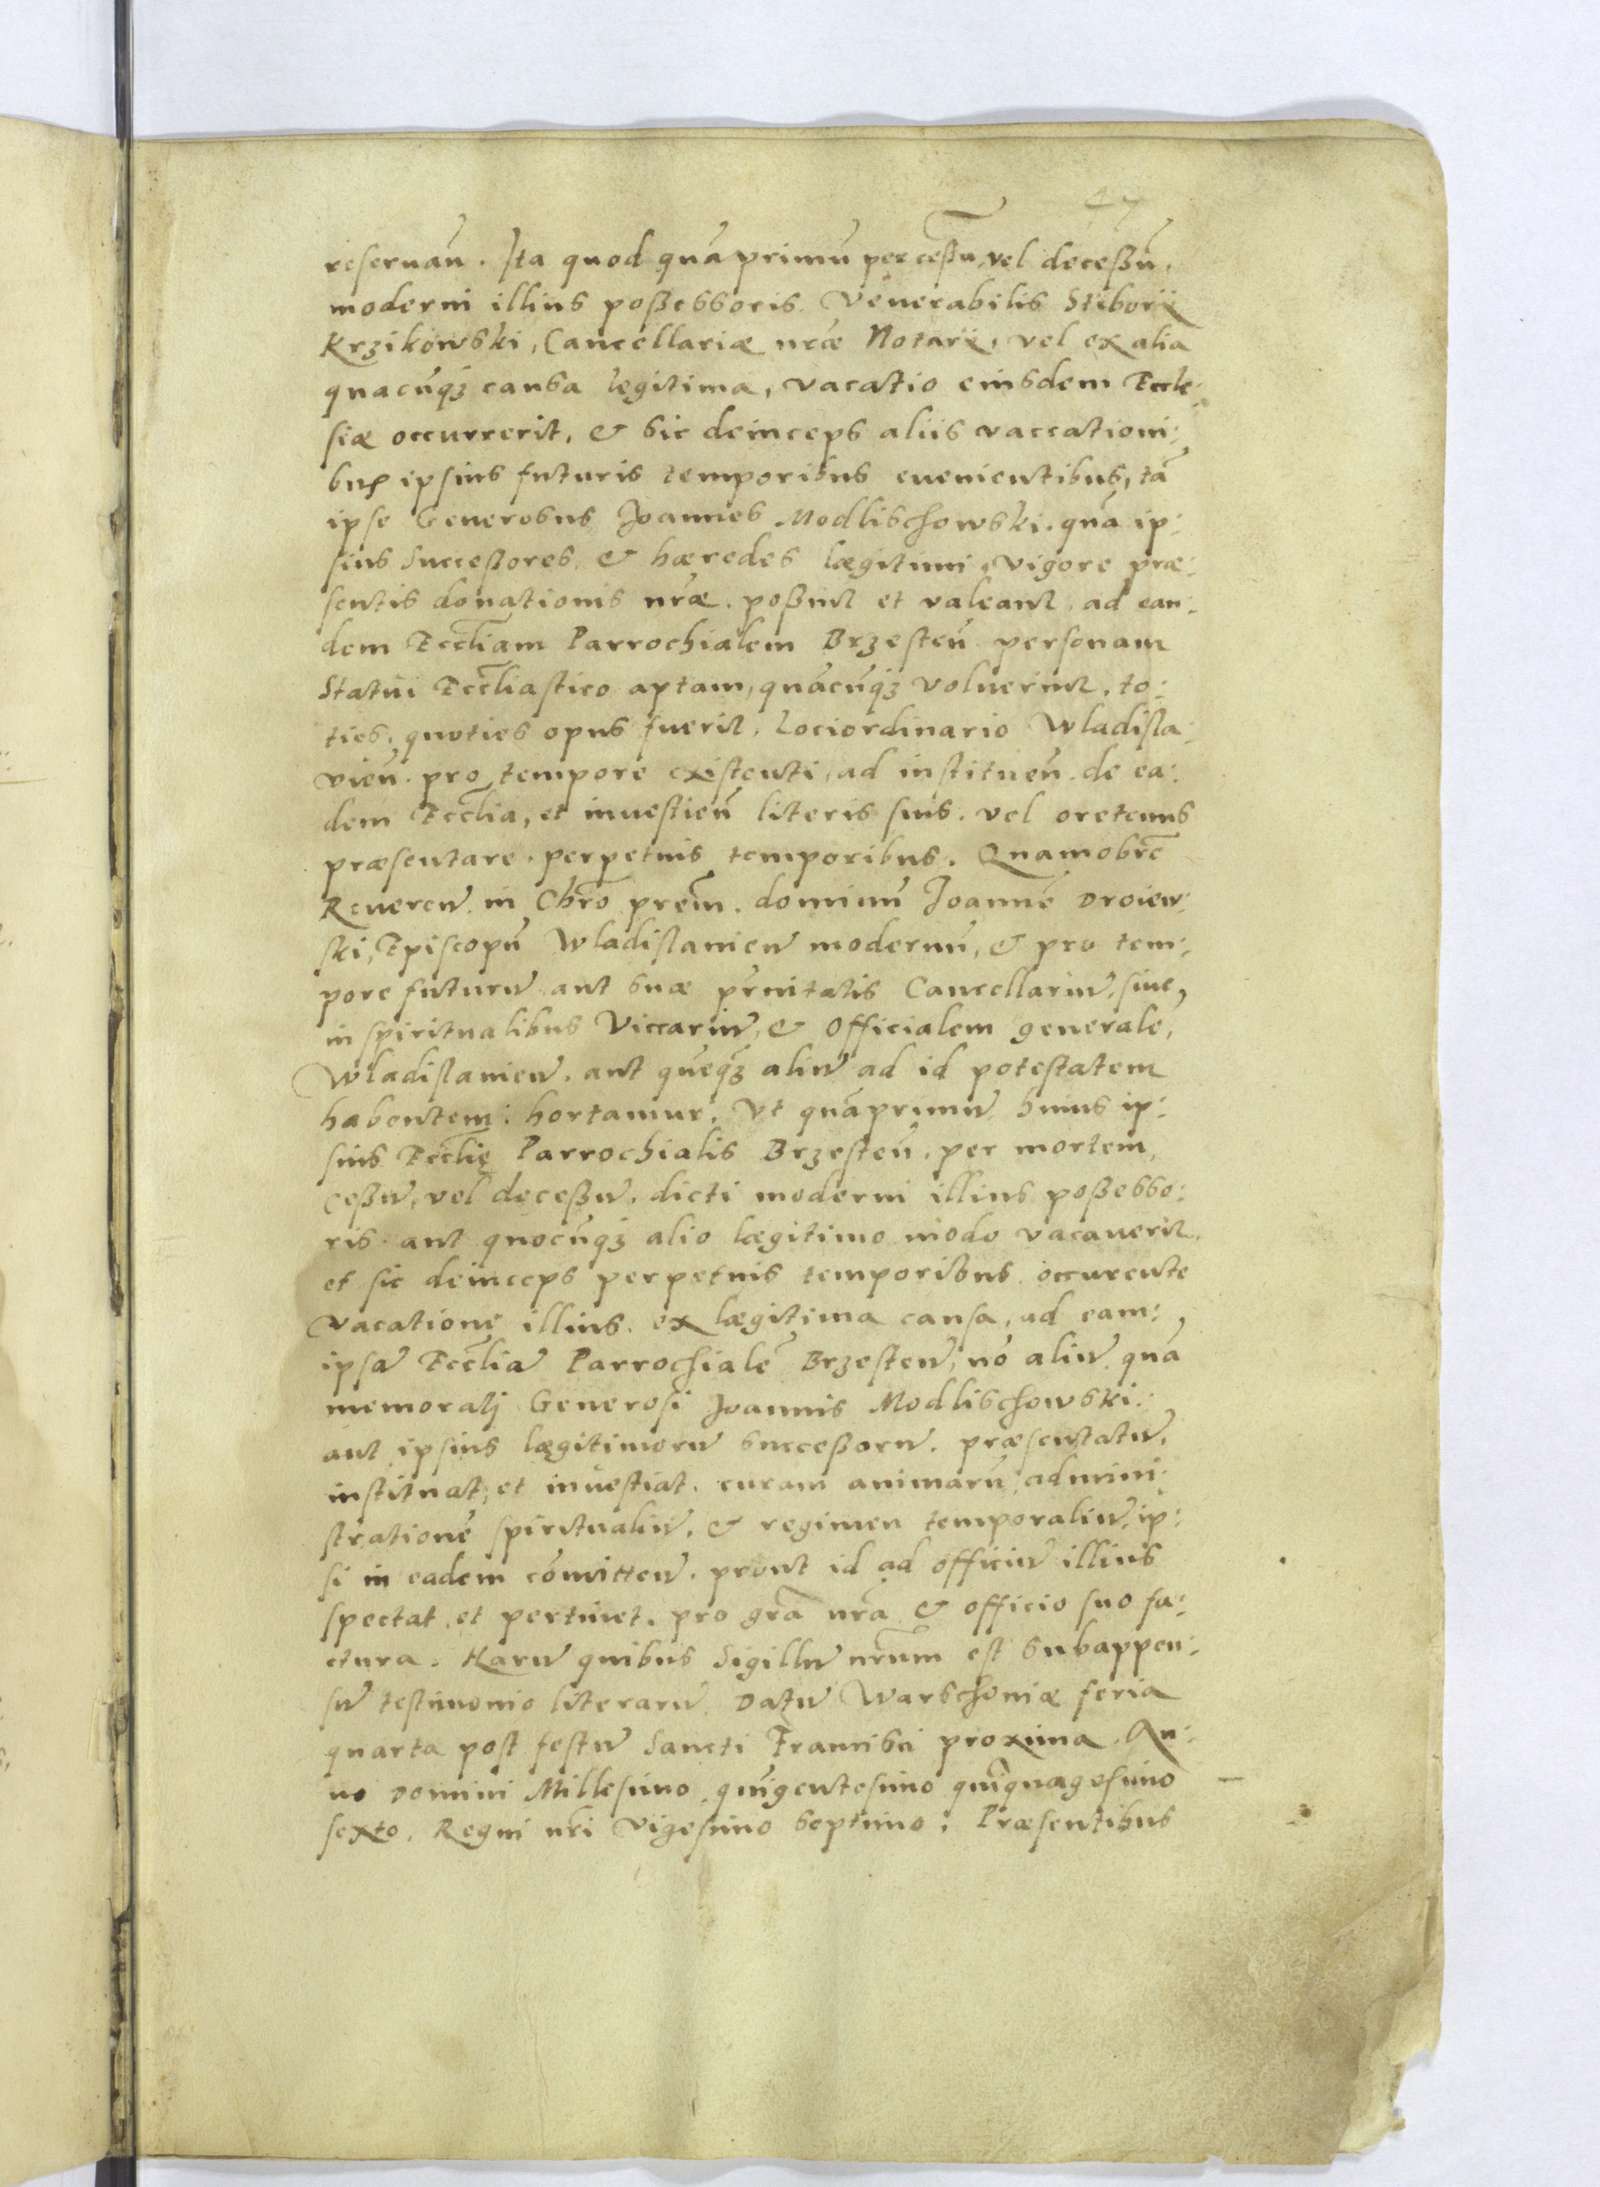 47
reseruań. Ita quod quā primū per cessū, vel decessū,
moderni illius possessoris Venerabilis Stiborii
Krzikowski, Cancellariæ nr̄æ Notarii, vel ex alia
quacūq3 causa legitima, vacatio eiusdem Eccle:
siæ occurrerit, & sic deinceps aliis vaccationi:
bus ipsius futuris temporibus euenientibus, tā
ipse Generosus Joannes Modlischowski, quā ip:
sius Successores, & hæredes lægitimi, vigore præ:
sentis donationis nr̄æ. possint et valeant, ad ean:
dem Eccl̄iam Parrochialem Brzesteń personam
Statui Eccl̄iastico aptam, quācūq3 voluerint, to:
ties, quoties opus fuerit, Lociordinario Wladisla:
vień. pro tempore existenti, ad instituen̄. de ea:
dem Eccl̄ia, et inuestien̄ literis suis. vel oretenus
præsentare. perpetuis temporibus. Quamobrē
Reueren̄. in Chr̄o pr̄em. dominū Joannē Droiew:
ski, Episcopū Wladislauien̄ modernū, & pro tem:
pore futurū aut suæ pr̄nitatis Cancellariū, siue,
in spiritualibus Viccariū, & Officialem generalē,
Wladislauien̄. aut quēq3 aliū ad id potestatem
habentem: hortamur. Vt quāprimū huius ip:
sius Eccl̄ię Parrochialis Brzesteń. per mortem,
cessū, vel decessū. dicti moderni illius possesso:
ris. aut quocūq3 alio lægitimo modo vacauerit,
et sic deinceps perpetuis temporibus occurente
vacatione illius. ex lægitima causa, ad eam:,
ipsā Eccl̄iā Parrochialē Brzesten̄, nō aliū quā
memorati Generosi Joannis Modlischowski:
aut ipsius lægitimorū successorū. præsentatū,
instituat, et inuestiat. curam animarū, admini:
strationē spiritualiū, & regimen temporaliū, ip:
si in eadem cōmitten̄. prout id ad officiū illius
spectat, et pertinet. pro gr̄a nr̄a & officio suo fa:
ctura. Harū quibus Sigillū nr̄um est subappen:
sū testimonio literarū Datū Warschoniæ feria
quarta post festū Sancti Francisci proxima. An:
no Domini Millesimo quīgentesimo quīquagesimo
sexto. Regni nr̄i Vigesimo septimo. Præsentibus